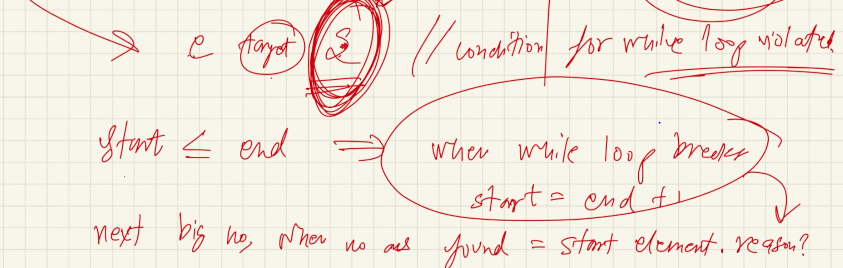 e target S // condition for while loop violated
start ≤ end ⇒ when while loop breaks
start = end + 1
next big no, when no ans found = start element. reason?